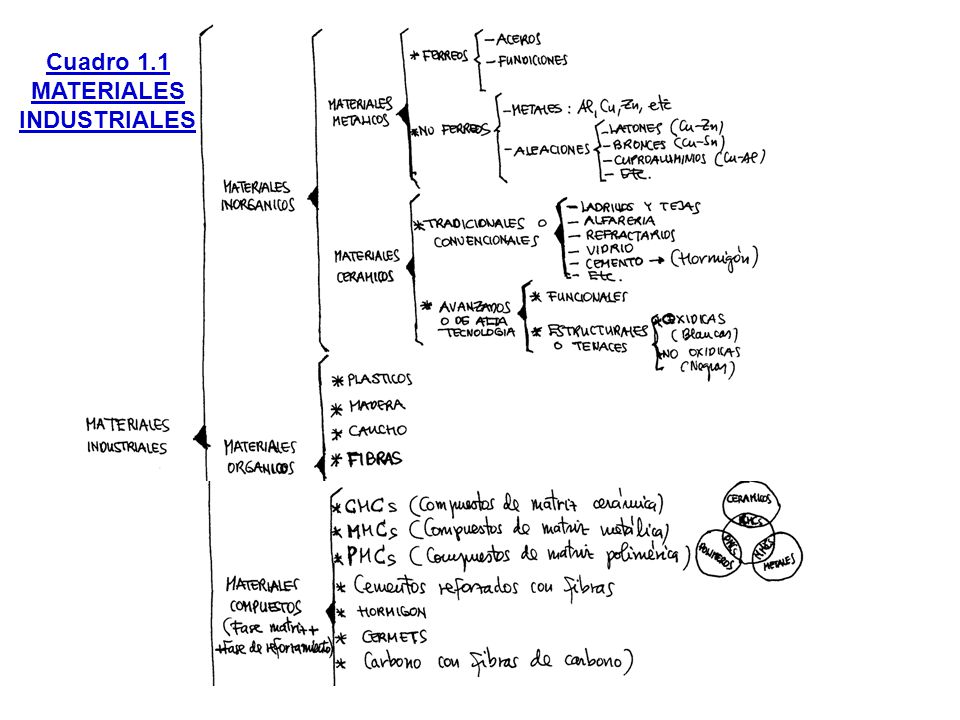 Cuadro 1.1
MATERIALES
INDUSTRIALES
MATERIALES
INDUSTRIALES
MATERIALES
INORGANICOS
MATERIALES
METALICOS
* FERREOS
- ACEROS
- FUNDICIONES
* NO FERREOS
- METALES : Al, Cu, Zn, etc
- ALEACIONES
- LATONES (Cu-Zn)
- BRONCES (Cu-Sn)
- CUPROALUMINIOS (Cu-Al)
- ETC.
MATERIALES
CERAMICOS
* TRADICIONALES O
CONVENCIONALES
- LADRILLOS Y TEJAS
- ALFARERIA
- REFRACTARIOS
- VIDRIO
- CEMENTO → (Hormigón)
- Etc.
* AVANZADOS
O DE ALTA
TECNOLOGIA
* FUNCIONALES
* ESTRUCTURALES
O TENACES
* OXIDICAS
(Blancas)
* NO OXIDICAS
(Negras)
MATERIALES
ORGANICOS
* PLASTICOS
* MADERA
* CAUCHO
* FIBRAS
MATERIALES
COMPUESTOS
(Fase matriz+
+Fase de reforzamiento)
* CMCs (Compuestos de matriz cerámica)
* MMCs (Compuestos de matriz metálica)
* PMCs (Compuestos de matriz polimérica)
* Cementos reforzados con fibras
* HORMIGON
* CERMETS
* Carbono con fibras de carbono)
CERAMICOS
CMCS
PMCS
MMCS
POLIMEROS
METALES